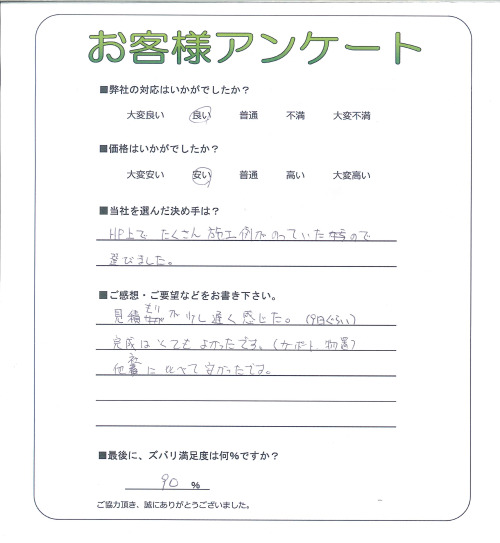 お客様アンケート
■弊社の対応はいかがでしたか？
大変良い 良い 普通 不満 大変不満
■価格はいかがでしたか？
大変安い 安い 普通 高い 大変高い
■当社を選んだ決め手は？
HP上で たくさん 施工例がのっていた ので
選びました。
■ご感想・ご要望などをお書き下さい。
見積もりが 少し遅く感じた。(9日ぐらい)
完成は とても よかったです。(カーポート、物置)
他社に比べて安かったです。
■最後に、ズバリ満足度は何％ですか？
90 ％
ご協力頂き、誠にありがとうございました。